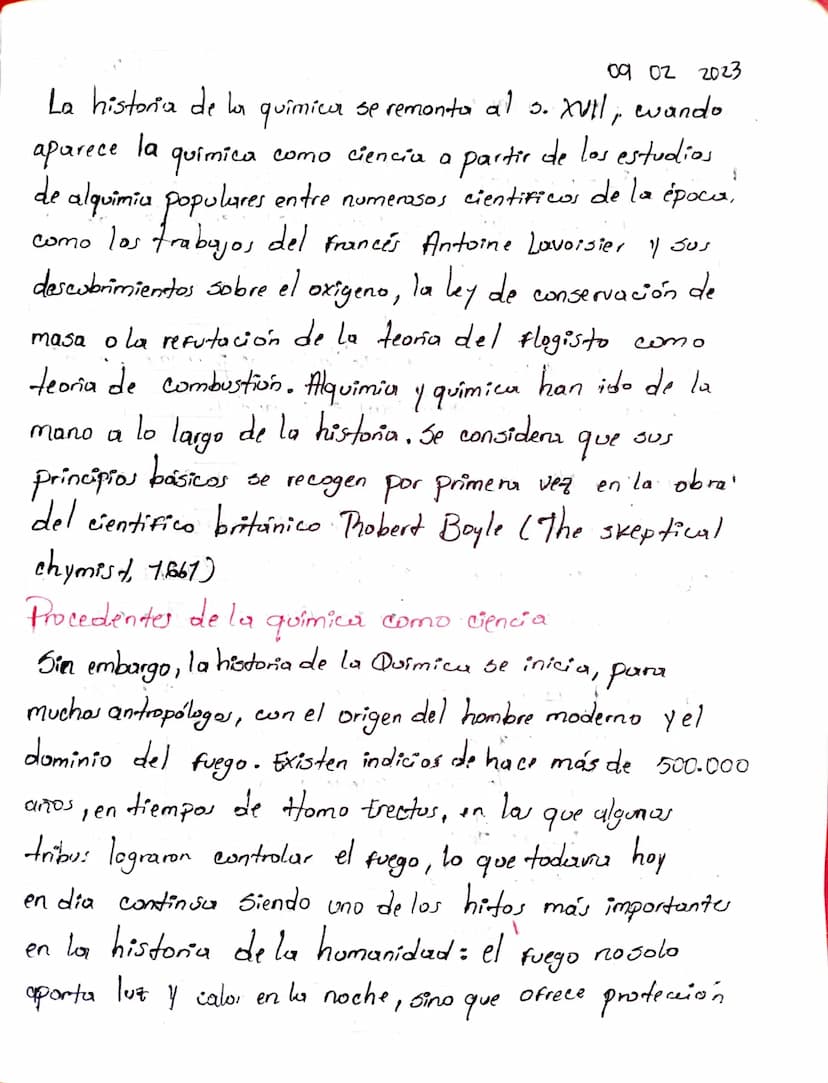 09 02 2023
La historia de la química se remonta al s. XVII, cuando
aparece la química como ciencia a partir de los estudios
de alquimia populares entre numerosos científicos de la época,
como los trabajos del francés Antoine Lavoisier y sus
descubrimientos sobre el oxígeno, la ley de conservación de
masa o la refutación de la teoría del flogisto como
teoría de combustión. Alquimia y química han ido de la
mano a lo largo de la historia. Se considera que sus
principios básicos se recogen por primera vez en la obra
del científico británico Robert Boyle (The skeptical
chymist, 1.661)
Procedentes de la química como ciencia
Sin embargo, la historia de la Química se inicia, para
muchos antropólogos, con el origen del hombre moderno y el
dominio del fuego. Existen indicios de hace más de 500.000
años, en tiempos de Homo Erectus, en las que algunas
tribus lograron controlar el fuego, lo que todavía hoy
en día continúa siendo uno de los hitos más importantes
en la historia de la humanidad: el fuego no solo
aporta luz y calor en la noche, sino que ofrece protección